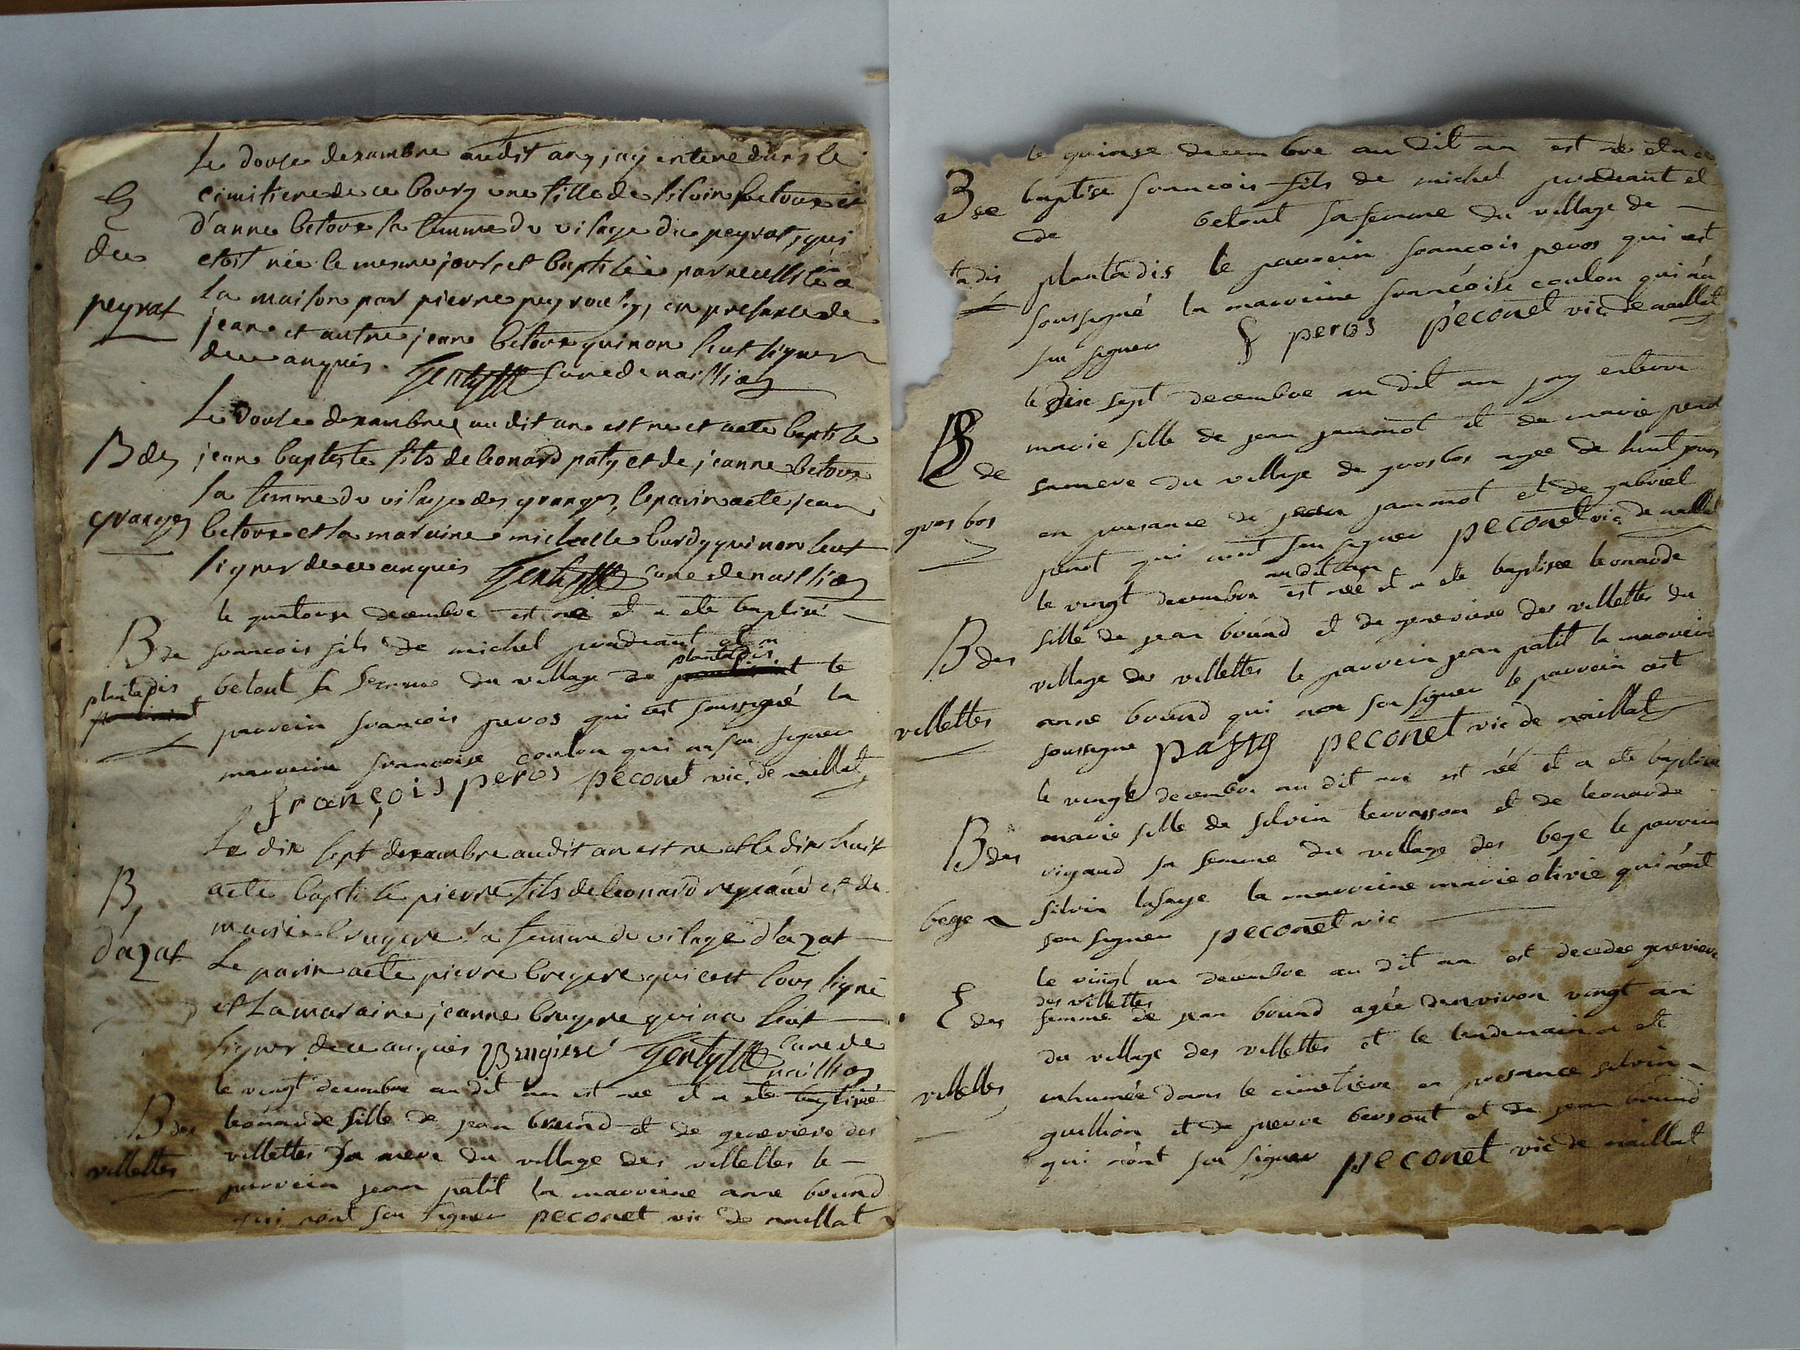 Le douse dexambre audit an, jay enteré dans le
E cimitiere de ce bourg une fille de silvin betoux et
d'anne betoux sa femme du vilage du peyrat, qui
du etoit née le mesme jour, et baptisée par necessité a
la maison par pierre peyroux, en presance de
peyrat jean et autre jean betoux qui non sceut signer
de ce anquis. Gentyff curé de naillac
Le douse dexambre audit an est ne et aeté baptisé
B des jean baptiste fils de leonard paty et de jeanne betoux
sa femme du vilage des granges, le parin aeté jean
granges betoux et la maraine michelle burdy qui non sceut
signer de ce anquis Gentyff curé de naillac
le quatorse decembre est né et a eté baptisé
B de francois fils de michel et
plantadis
betout sa femme du village de le
plantadis
parrein francois peros qui est soussigné la
marreine francoise coulon qui an su signer
françois peros peconet vic. de naillat
Le dix sept dexambre audit an est ne et le dix huit
B aeté baptisé pierre fils de leonard reynaud et de
marie brugere sa femme du vilage d'azat
d'azat Le parin aeté pierre brugere qui cest sous signé
et La maraine jeanne brugere qui na sceut
signer de ce anquis Brugiere Gentyff curé de
naillac
le vingt decembre au dit an est né et a eté baptisé
B des leonarde fille de jean bound et de genevieve des
villettes sa mere du village des villettes le
villettes parrein jean patit la marreine anne bound
qui nont su signer peconet vic de naillat
le quinse decembre au dit an est né et a eté
B de baptisé francois fils de michel et
de betout sa femme du village de
tadis plantadis le parrein francois peros qui est
soussigné la marreine francoise coulon qui na
su signer f peros peconet vic. de naillat
le dix sept decembre au dit an jay enterré
E marie fille de jean jammot et de marie penot
de sa mere du village de grosbos agée de huit
gros bos en presance de jean jammot et de gabriel
penot qui nont su signer peconet vic. de naillat
au dit an
le vingt decembre est né et a eté baptisée leonarde
B des fille de jean bound et de genevieve des villettes du
village des villettes le parrein jean patit la marreine
villettes anne bound qui non su signer le parrein est
soussigne patit peconet vic de naillat
le vingt decembre au dit an est né et a eté baptisée
B des marie fille de silvin terrasson et de leonarde
rigaud sa femme du village des bege le parrein
bege silvin lafaye la marreine marie olivié qui nont
su signer peconet vic
le vingt un decembre au dit an est decedee genevieve
des villettes
E des femme de jean bound agée denviron vingt an
du village des villettes et le lendemain a eté
villettes inhumée dans le cimetiere en presance silvin
guillion et de pierre bersout et de jean bound
qui nont su signer peconet vic de naillat